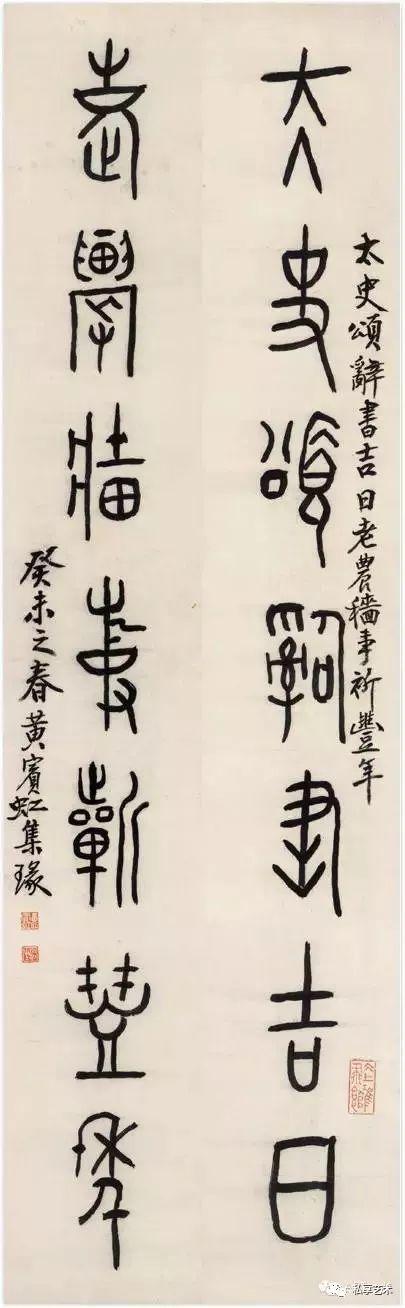 大史頌辭書吉日
太史頌辭書吉日老農穡事祈豐年
老農穡事祈豐年
癸未之春黃賓虹集瑑
私享艺术